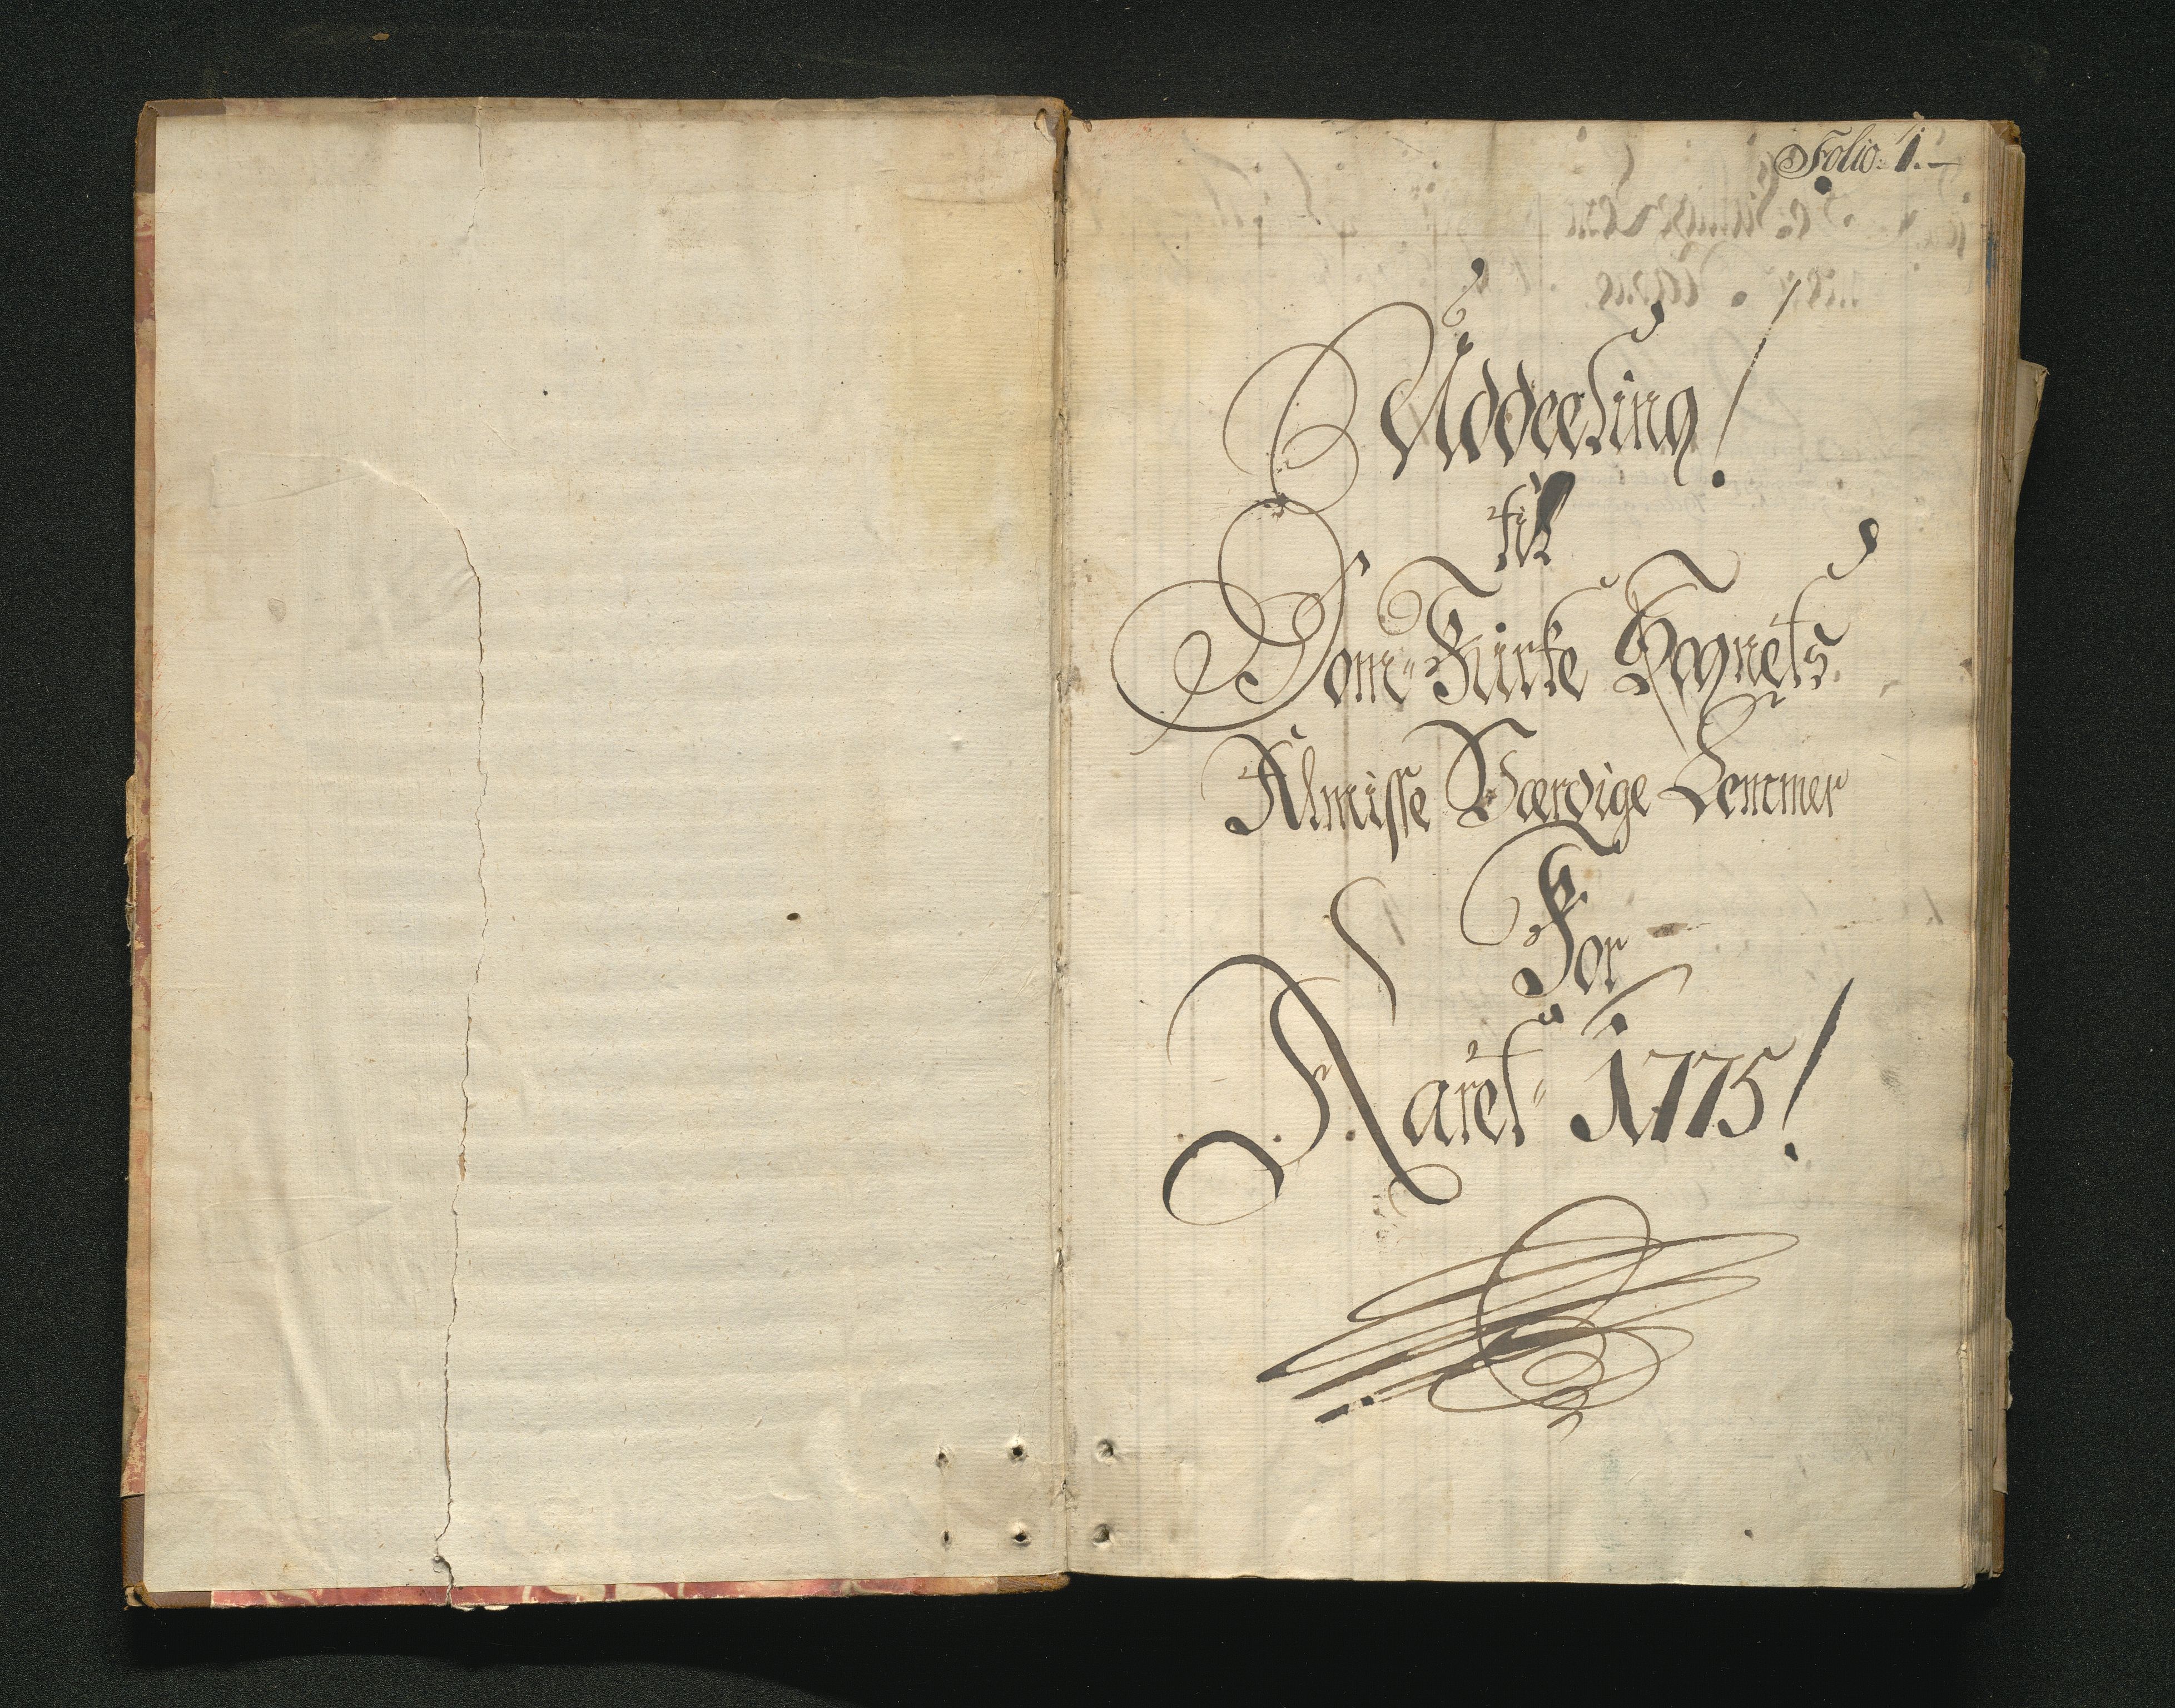 Folio. 1.-
Uddeeling!
til
Dom-Kirke Sognets
Almisse Værdige Lemmer
For
Aaret 1775!